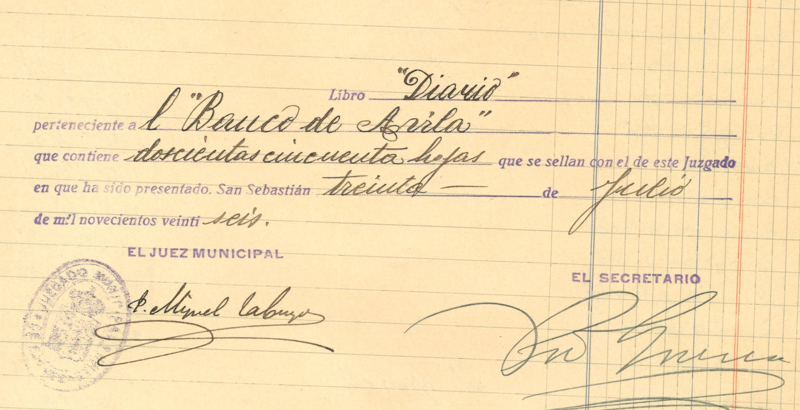 Libro "Diario"
perteneciente a l "Banco de Avila"
que contiene doscientas cincuenta hojas que se sellan con el de este Juzgado
en que ha sido presentado. San Sebastián treinta — de Julio
de mil novecientos veinti seis.
EL JUEZ MUNICIPAL
EL SECRETARIO
JUZGADO MUNICIPAL
Miguel